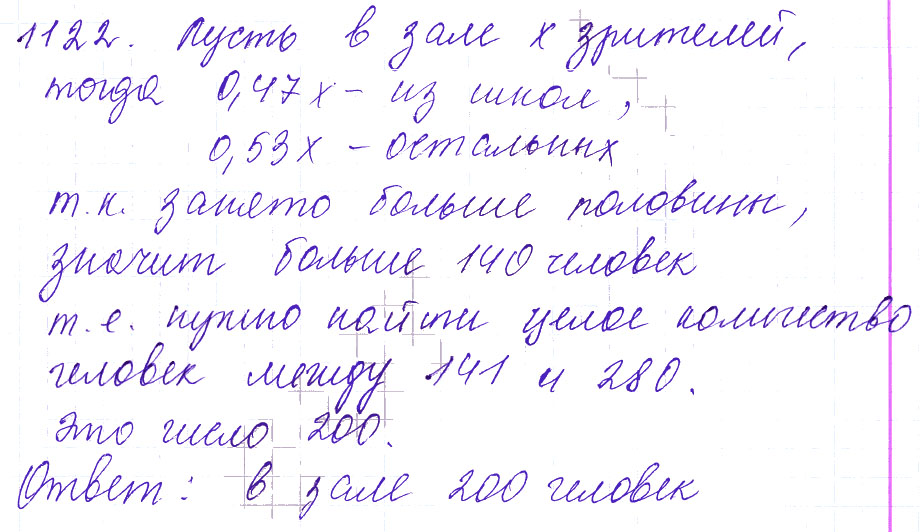 1122. Пусть в зале х зрителей,
тогда 0,47х - из школ,
0,53х - остальных
т.к. занято больше половины,
значит больше 140 человек
т.е. нужно найти целое количество
человек между 141 и 280.
Это число 200.
Ответ: в зале 200 человек